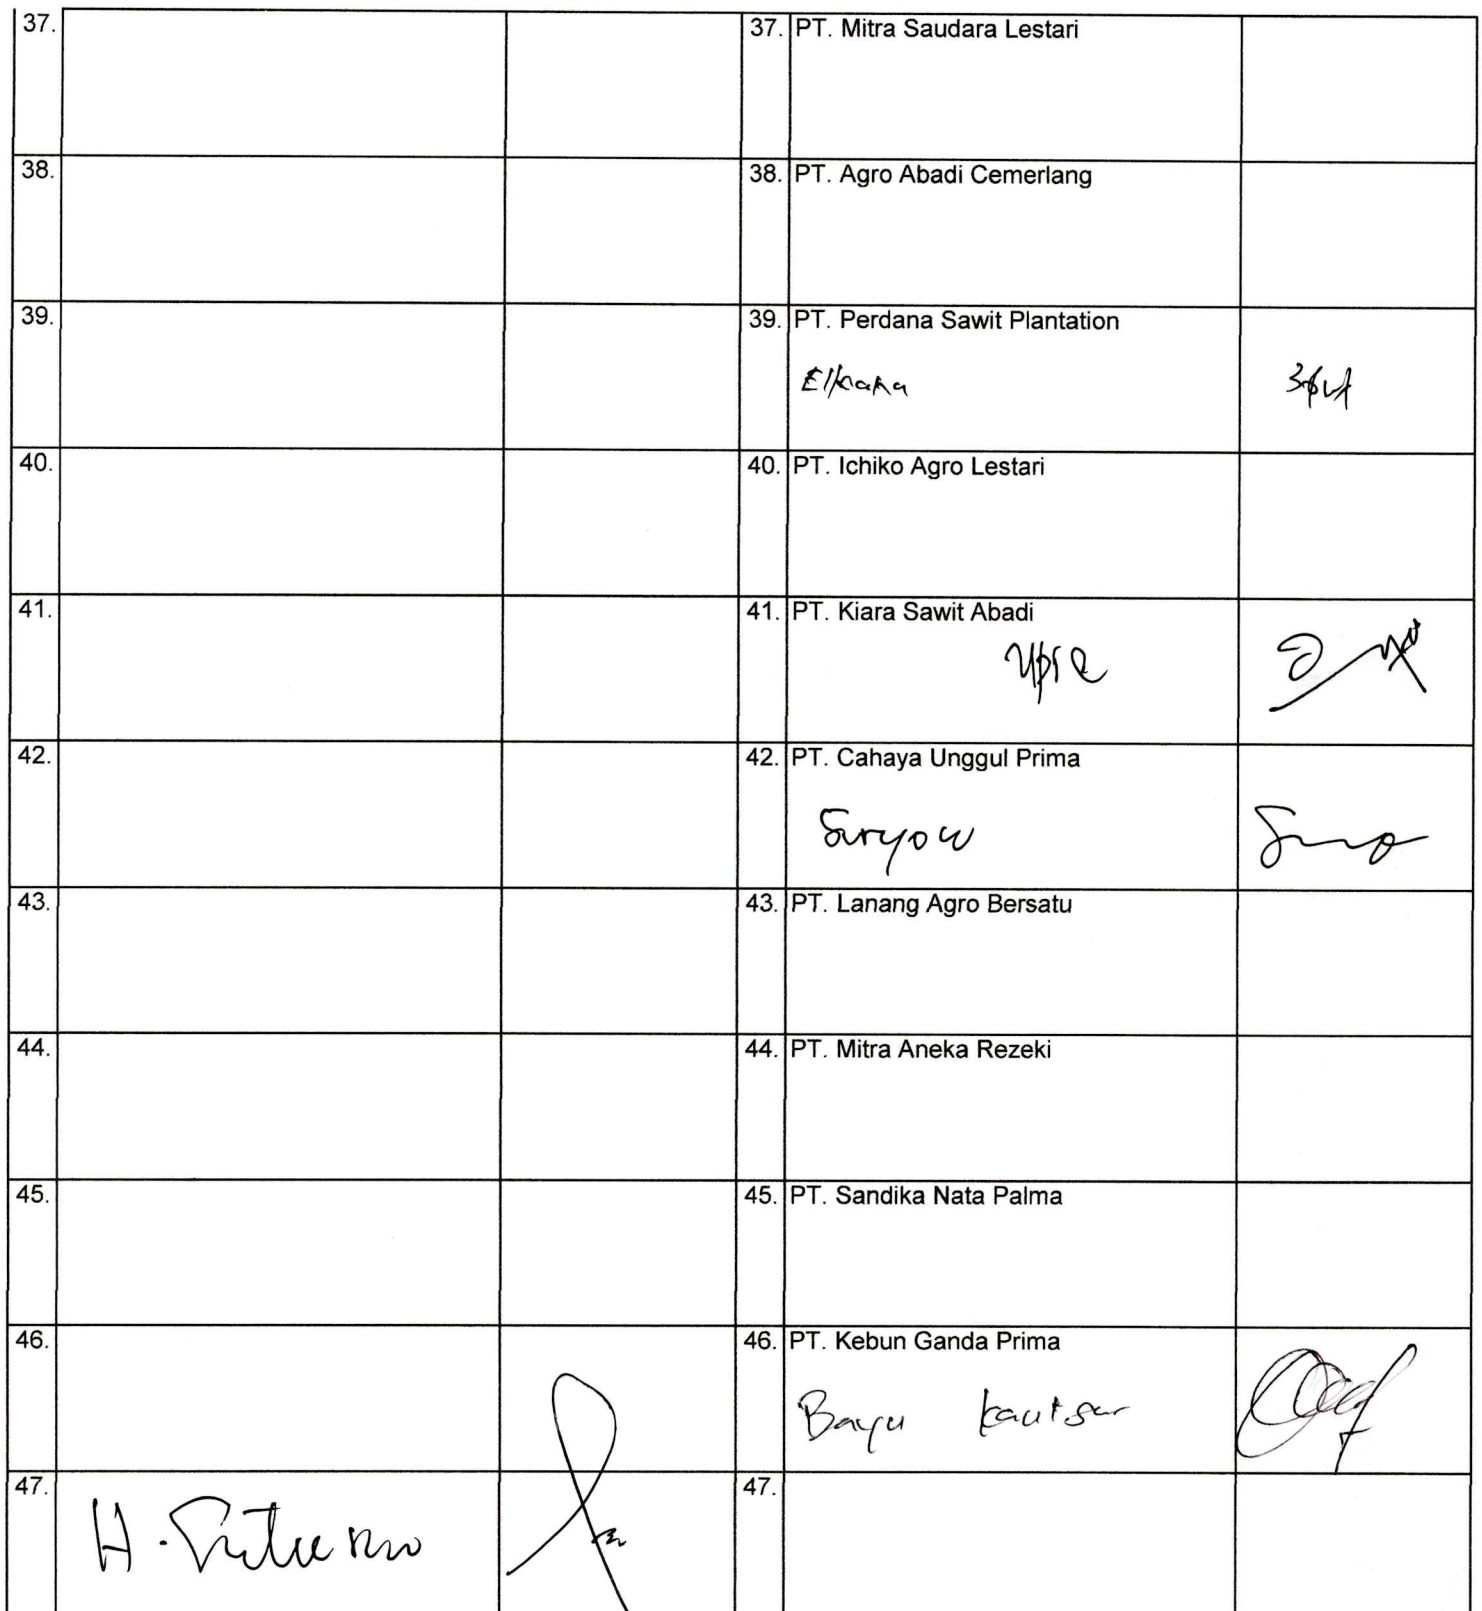 37. 37. PT. Mitra Saudara Lestari
38. 38. PT. Agro Abadi Cemerlang
39. 39. PT. Perdana Sawit Plantation
40. 40. PT. Ichiko Agro Lestari
41. 41. PT. Kiara Sawit Abadi
42. 42. PT. Cahaya Unggul Prima
Suryow
43. 43. PT. Lanang Agro Bersatu
44. 44. PT. Mitra Aneka Rezeki
45. 45. PT. Sandika Nata Palma
46. 46. PT. Kebun Ganda Prima
Bayu Kautsar
47. 47.
H.